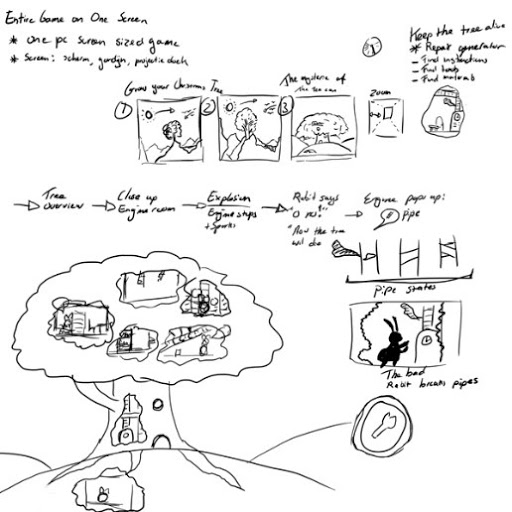 Entire Game on One Screen
* One pc screen sized game
* Screen:
Keep the tree alive
* Repair generator
- Find instructions
- Find tools
- Find materials
1
Grow your Christmas Tree
The mystery of
1
2
3
Zoom
Tree
Overview
Close up
Engine room
Explosion
Engine stops
+ Sparks
Rabit says
"O no!"
"Now the tree
will die
Engine pops up:
Pipe
Pipe states
The bad
Rabit breaks pipes